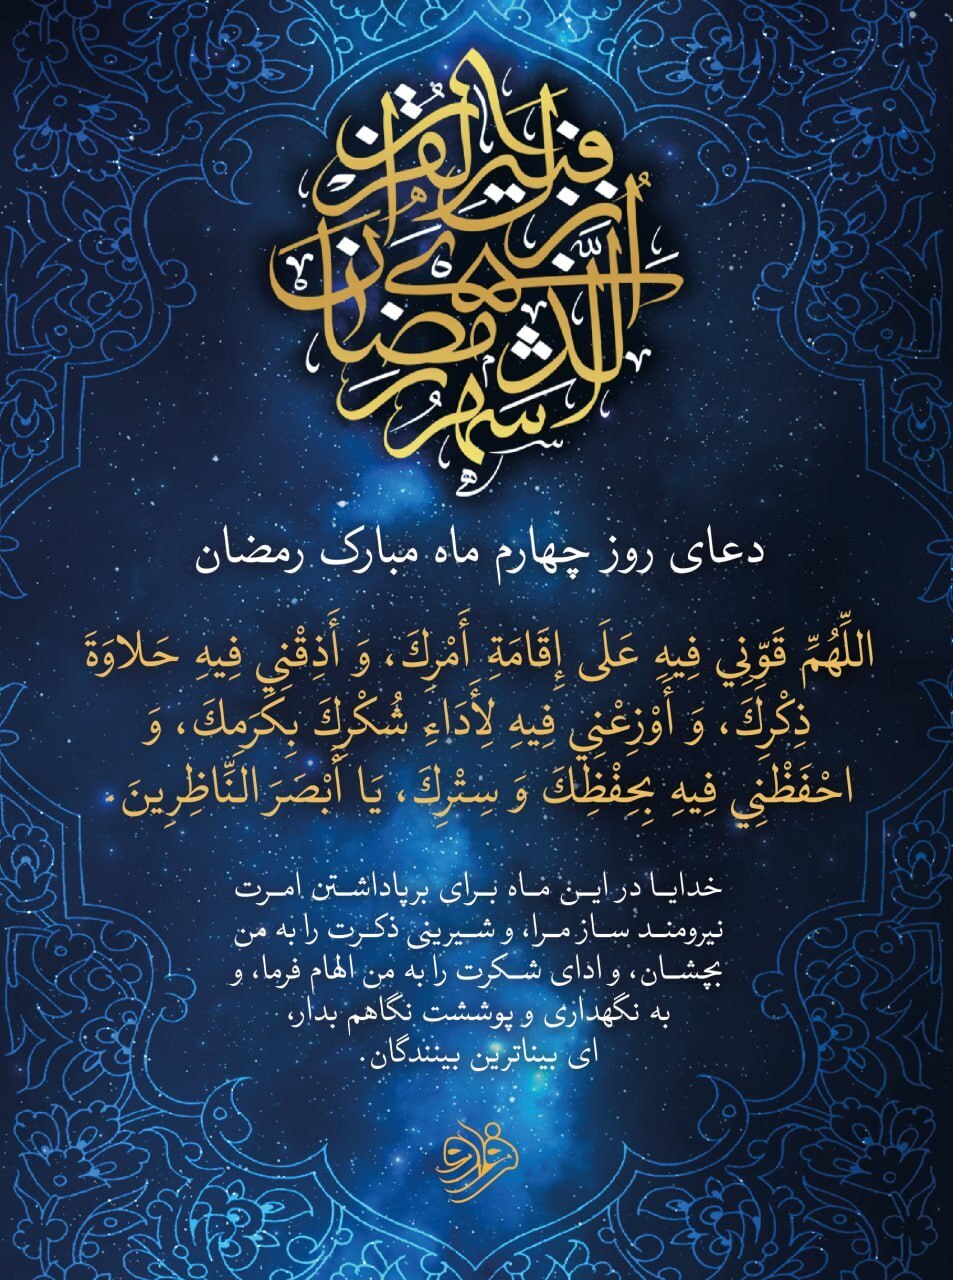 شهر رمضان الذی أُنزِلَ فیه القرآن
دعای روز چهارم ماه مبارک رمضان
اللَّهُمَّ قَوِّنِي فِيهِ عَلَى إِقَامَةِ أَمْرِكَ، وَ أَذِقْنِي فِيهِ حَلاوَةَ
ذِكْرِكَ، وَ أَوْزِعْنِي فِيهِ لِأَدَاءِ شُكْرِكَ بِكَرَمِكَ، وَ
احْفَظْنِي فِيهِ بِحِفْظِكَ وَ سِتْرِكَ، يَا أَبْصَرَ النَّاظِرِينَ.
خدایا در این ماه برای برپاداشتن امرت
نیرومند ساز مرا، و شیرینی ذکرت را به من
بچشان، و ادای شکرت را به من الهام فرما، و
به نگهداری و پوششت نگاهم بدار،
ای بیناترین بینندگان.